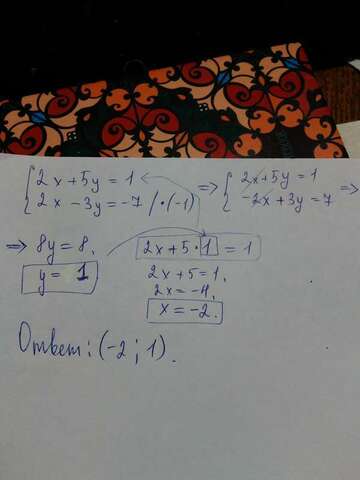 {2x+5y=1 => {2x+5y=1 =>
{2x-3y=-7 /·(-1) {-2x+3y=7
=> 8y=8, 2x+5·1=1
y=1 2x+5=1,
2x=-4,
x=-2.
Ответ: (-2; 1).